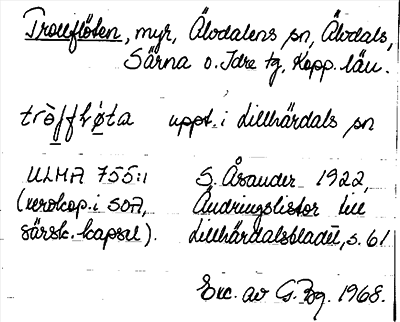 Trouflöten, myr, Älvdalens sn, Älvdals,
Särna o. Idre tg, Kopp. län.
tròffḷø̀ta uppt. i Lillhärdals sn
ULMA 755:1 S. Åsander 1922,
(xerokop. i SOA, Ändringslistor till
särsk. kapsel). Lillhärdalsbladet, s. 61
Exc. av G. Bg. 1968.